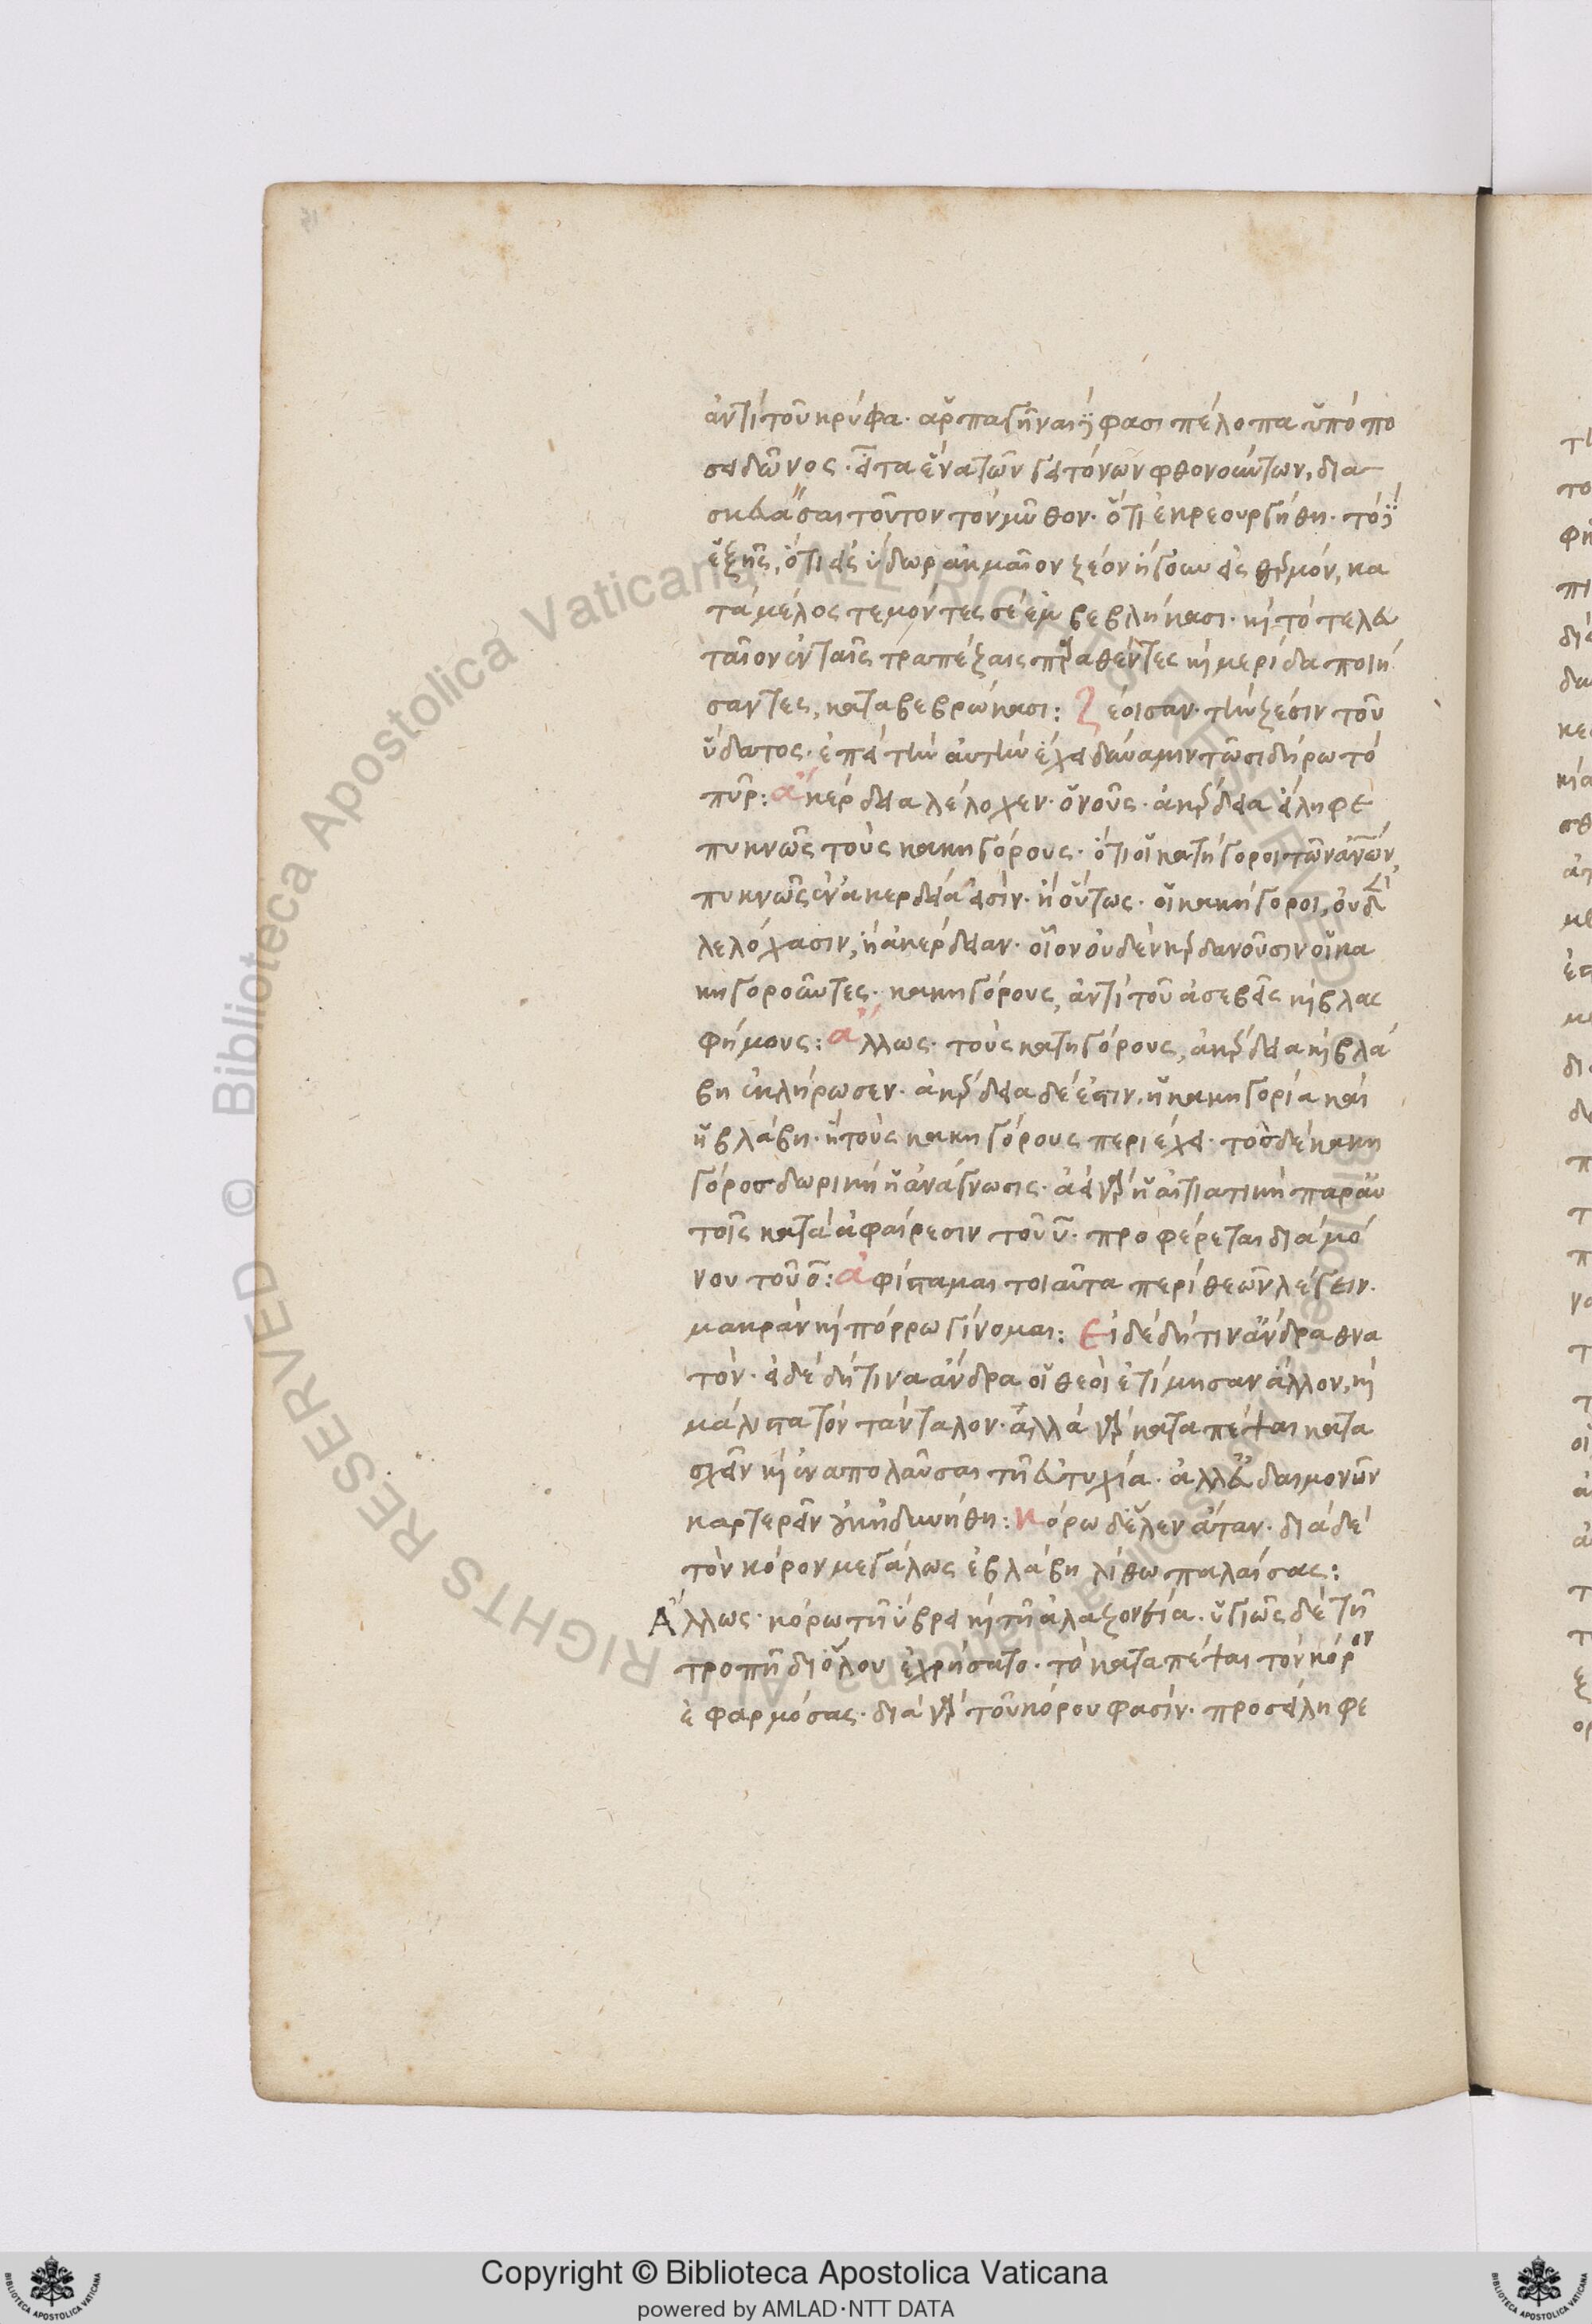 ἀντὶ τοῦ κρύφα. ἁρπαγῆναι φασι πέλοπα ὑπὸ πο
σειδῶνος. εἶτα ἕνα τῶν γειτόνων φθονούντων, δια
σκευάσαι τοῦτον τὸν μῦθον. ὅτι ἐκρεουργήθη. τὸ
ἑξῆς, ὅτι εἰς ὕδωρ ἀκμαῖον ζέον ἤγουν εἰς θερμόν, κα
τὰ μέλος τεμόντες σὲ ἐμβεβλήκασι. καὶ τὸ τελευ
ταῖον ἐν ταῖς τραπέζαις παραθέντες καὶ μερίδα ποιή
σαντες, καταβεβρώκασι: ζέοισαν. τὴν ζέσιν τοῦ
ὕδατος. ἐπεὶ τὴν αὐτὴν ἔχει δύναμιν τῶ σιδήρω τὸ
πῦρ: ἀκέρδεια λέλογχεν. ὁ νοῦς. ἀκέρδεια εἴληφε
πυκνῶς τοὺς κακηγόρους. ὅτι οἱ κατήγοροι τῶν ἀνῶν,
πυκνῶς ἐν ἀκερδεία εἰσίν. ἢ οὕτως. οἱ κακήγοροι, οὐδὲν
λελόχασιν, ἢ ἀκέρδειαν. οἷον οὐδὲν κερδανοῦσιν οἱ κα
κηγοροῦντες. κακηγόρους, ἀντὶ τοῦ ἀσεβεῖς καὶ βλας
φήμους: ἄλλως. τοὺς κατηγόρους, ἀκέρδεια καὶ βλά
βη ἐκλήρωσεν. ἀκέρδεια δέ ἐστιν, ἡ κακηγορία καὶ
ἡ βλάβη. ἢ τοὺς κακηγόρους περιέχει. τοσδὲ κακη
γόροσ δωρικὴ ἡ ἀνάγνωσις. ἀεὶ γὰρ ἡ αἰτιατικὴ παρ' αὐ
τοῖς κατὰ ἀφαίρεσιν τοῦ υ. προφέρεται διὰ μό
νου τοῦ ο: ἀφίσταμαι τοιαῦτα περὶ θεῶν λέγειν.
μακρὰν καὶ πόρρω γίνομαι: Εἰ δὲ δή τιν ἄνδρα θνα
τόν. εἰ δὲ δή τινα ἄνδρα οἱ θεοὶ ἐτίμησαν ἄλλον, καὶ
μάλιστα τὸν τάνταλον. ἀλλὰ γὰρ καταπέψαι κατα
σχεῖν καὶ ἐναπολαῦσαι τῇ εὐτυχία. ἀλλ' εὐδαιμονῶν
καρτερεῖν οὐκ ἠδυνήθη: κόρω δ' ἕλεν ἄταν. διὰ δὲ
τὸν κόρον μεγάλως ἐβλάβη λίθω παλαίσας:
Ἄλλως. κόρω τῇ ὕβρει καὶ τῇ ἀλαζονεία. ὑγιῶς δὲ τῇ
τροπῇ διόλου ἐχρήσατο. τὸ καταπέψαι τὸν κόρον
ἐφαρμόσας. διὰ γὰρ τοῦ κόρου φασίν. προσείληφε
Copyright © Biblioteca Apostolica Vaticana
powered by AMLAD·NTT DATA